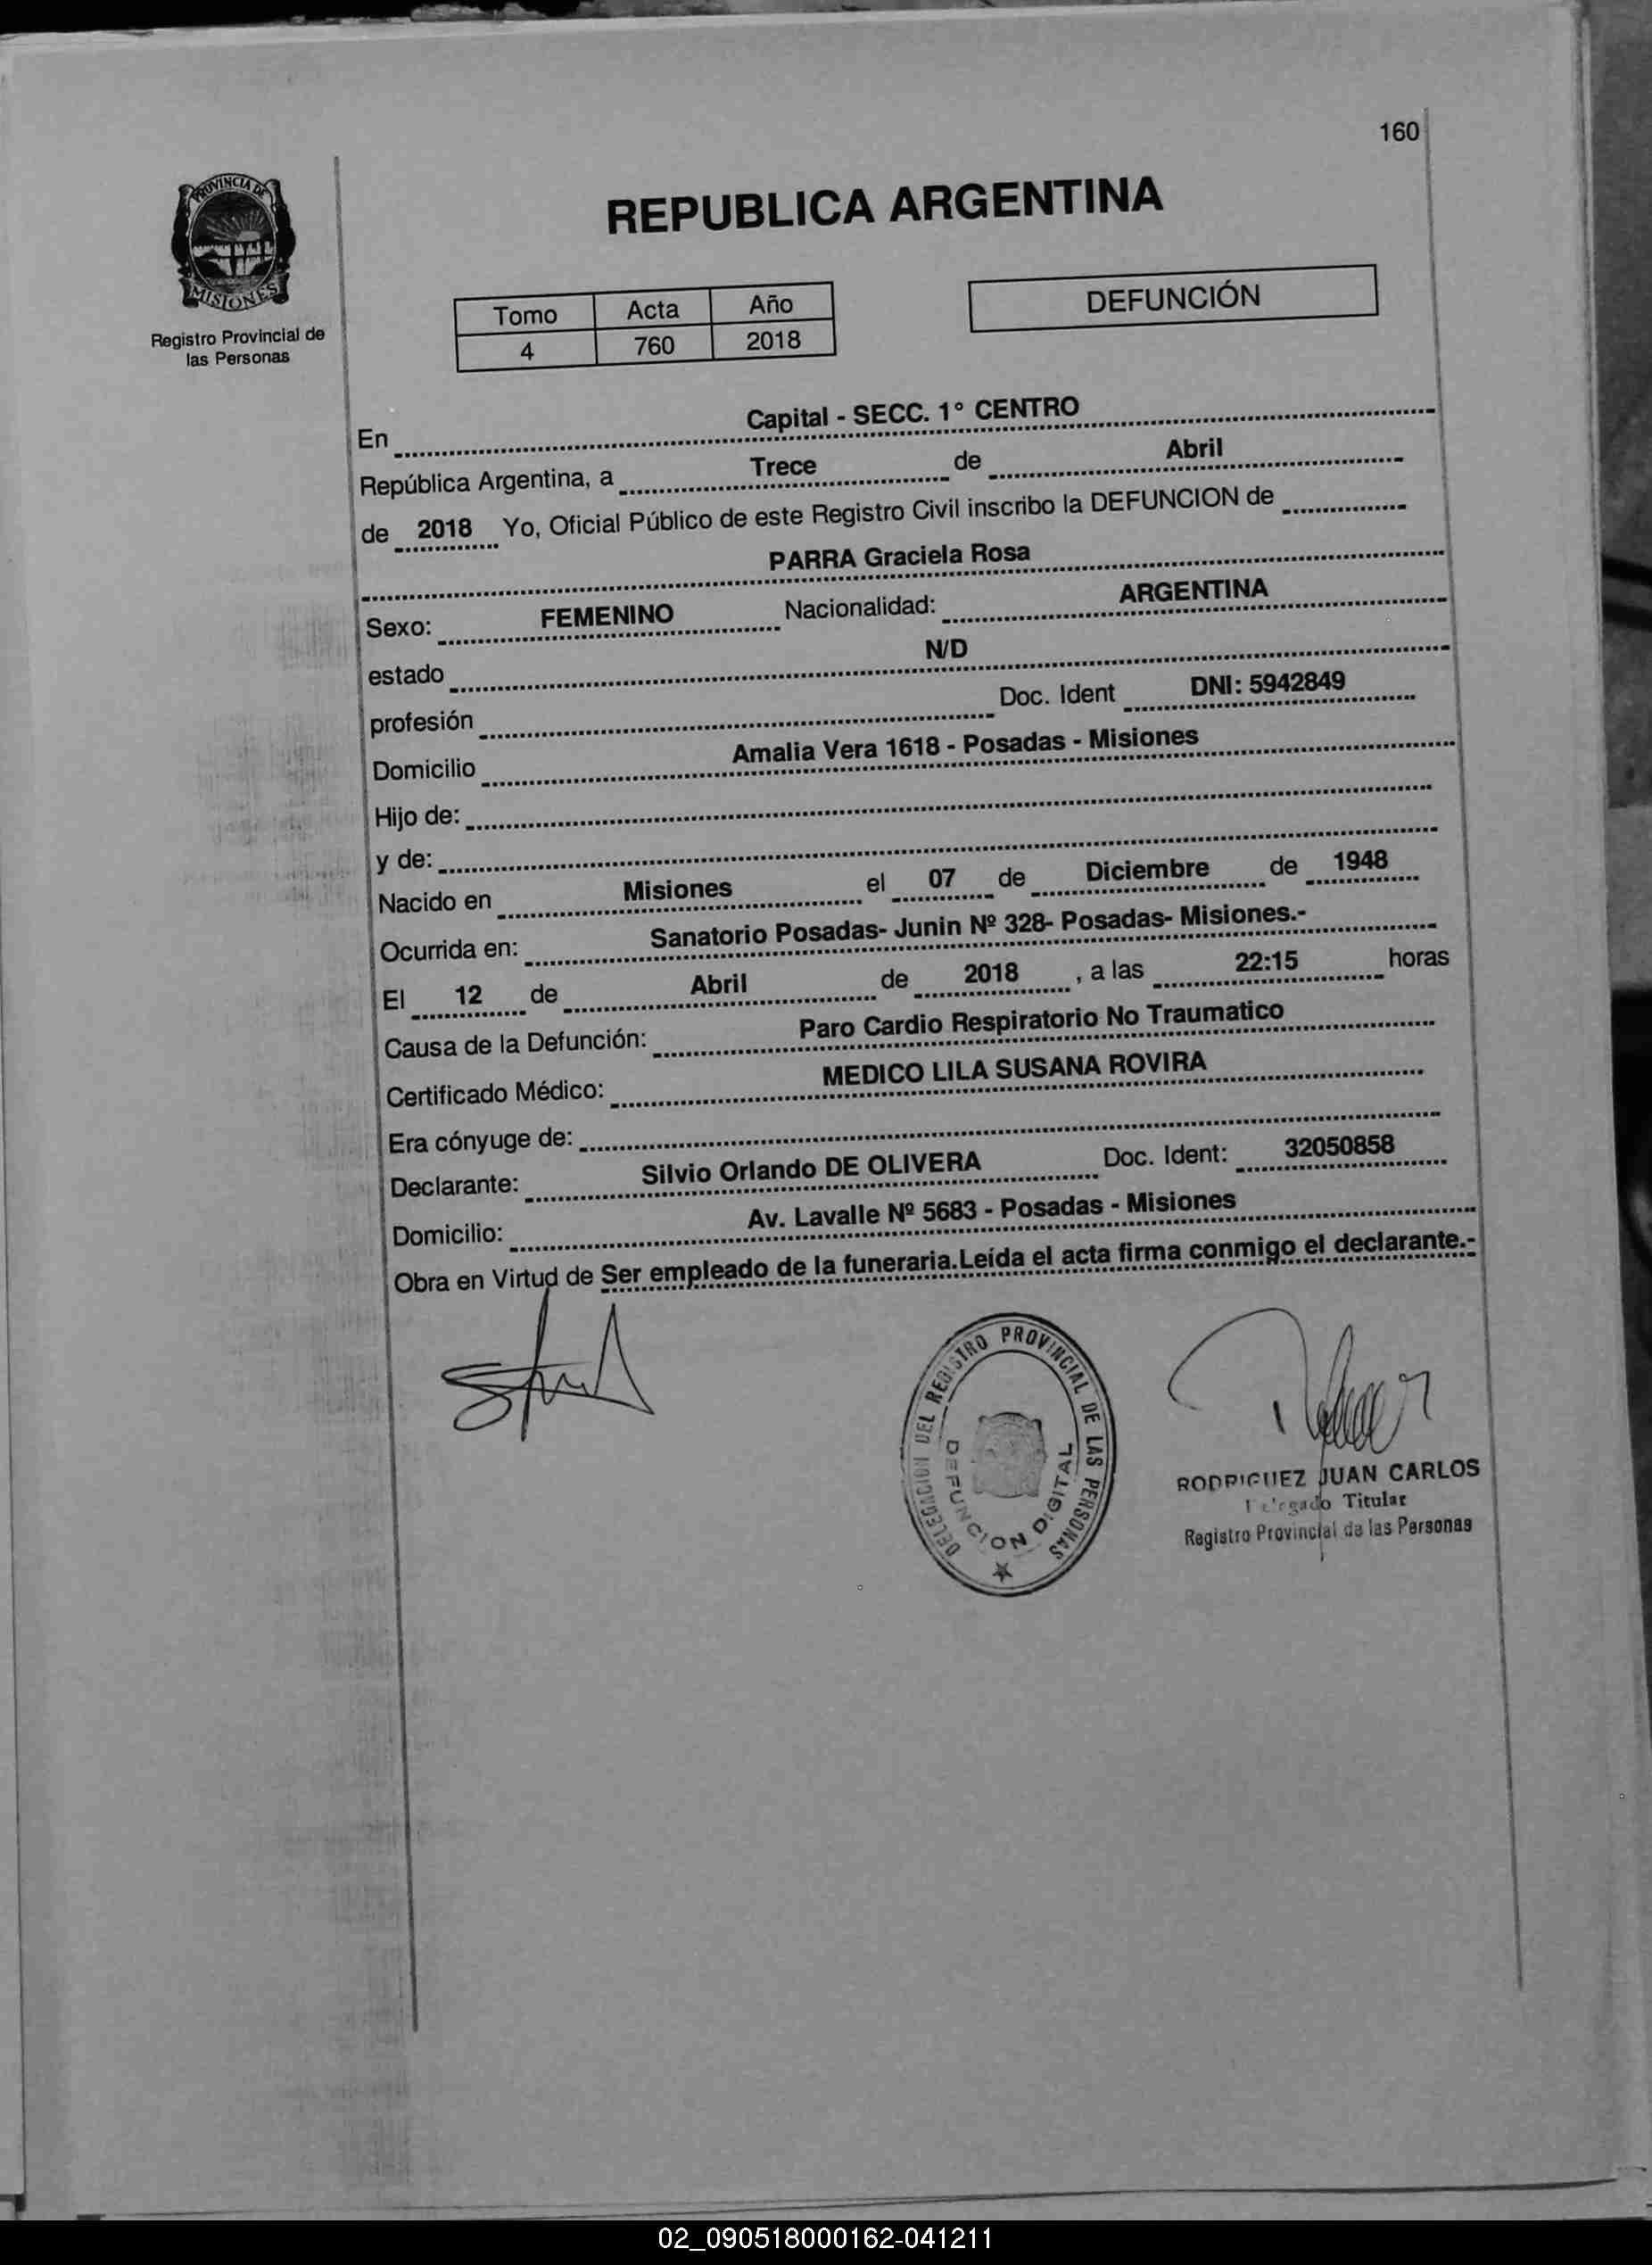 160
PROVINCIA DE
MISIONES
Registro Provincial de
las Personas
REPUBLICA ARGENTINA
Tomo Acta Año
4 760 2018
DEFUNCIÓN
En Capital - SECC. 1° CENTRO
República Argentina, a Trece de Abril
de 2018 Yo, Oficial Público de este Registro Civil inscribo la DEFUNCION de
PARRA Graciela Rosa
Sexo: FEMENINO Nacionalidad: ARGENTINA
estado N/D
profesión Doc. Ident DNI: 5942849
Domicilio Amalia Vera 1618 - Posadas - Misiones
Hijo de:
y de:
Nacido en Misiones el 07 de Diciembre de 1948
Ocurrida en: Sanatorio Posadas- Junin Nº 328- Posadas- Misiones.-
El 12 de Abril de 2018 , a las 22:15 horas
Causa de la Defunción: Paro Cardio Respiratorio No Traumatico
Certificado Médico: MEDICO LILA SUSANA ROVIRA
Era cónyuge de:
Declarante: Silvio Orlando DE OLIVERA Doc. Ident: 32050858
Domicilio: Av. Lavalle Nº 5683 - Posadas - Misiones
Obra en Virtud de Ser empleado de la funeraria.Leída el acta firma conmigo el declarante.-
DELEGACION DEL REGISTRO PROVINCIAL DE LAS PERSONAS
DEFUNCION DIGITAL
RODRIGUEZ JUAN CARLOS
Delegado Titular
Registro Provincial de las Personas
02_090518000162-041211